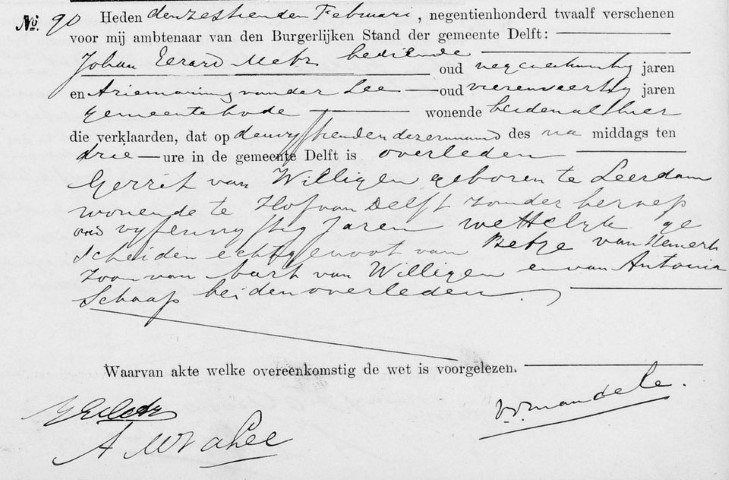 No. 90 Heden den zestienden Februari, negentienhonderd twaalf verschenen
voor mij ambtenaar van den Burgerlijken Stand der gemeente Delft:
Johan Eerard Metz bediende
oud negenentwintig jaren
en Ariemarinus van der Lee oud vierenveertig jaren
gemeentebode wonende beiden alhier
die verklaarden, dat op den vyftienden dezer maand des na middags ten
drie ure in de gemeente Delft is overleden
Gerrit van Willigen geboren te Leerdam
wonende te Hof van Delft zonder beroep
oud vyfenvyftig Jaren wettelyk ge
scheiden echtgenoot van Betje van Hemert
zoon van Bart van Willigen en van Antonia
Schaap beiden overleden.
Waarvan akte welke overeenkomstig de wet is voorgelezen.
v.d. mandele.
A M v d Lee